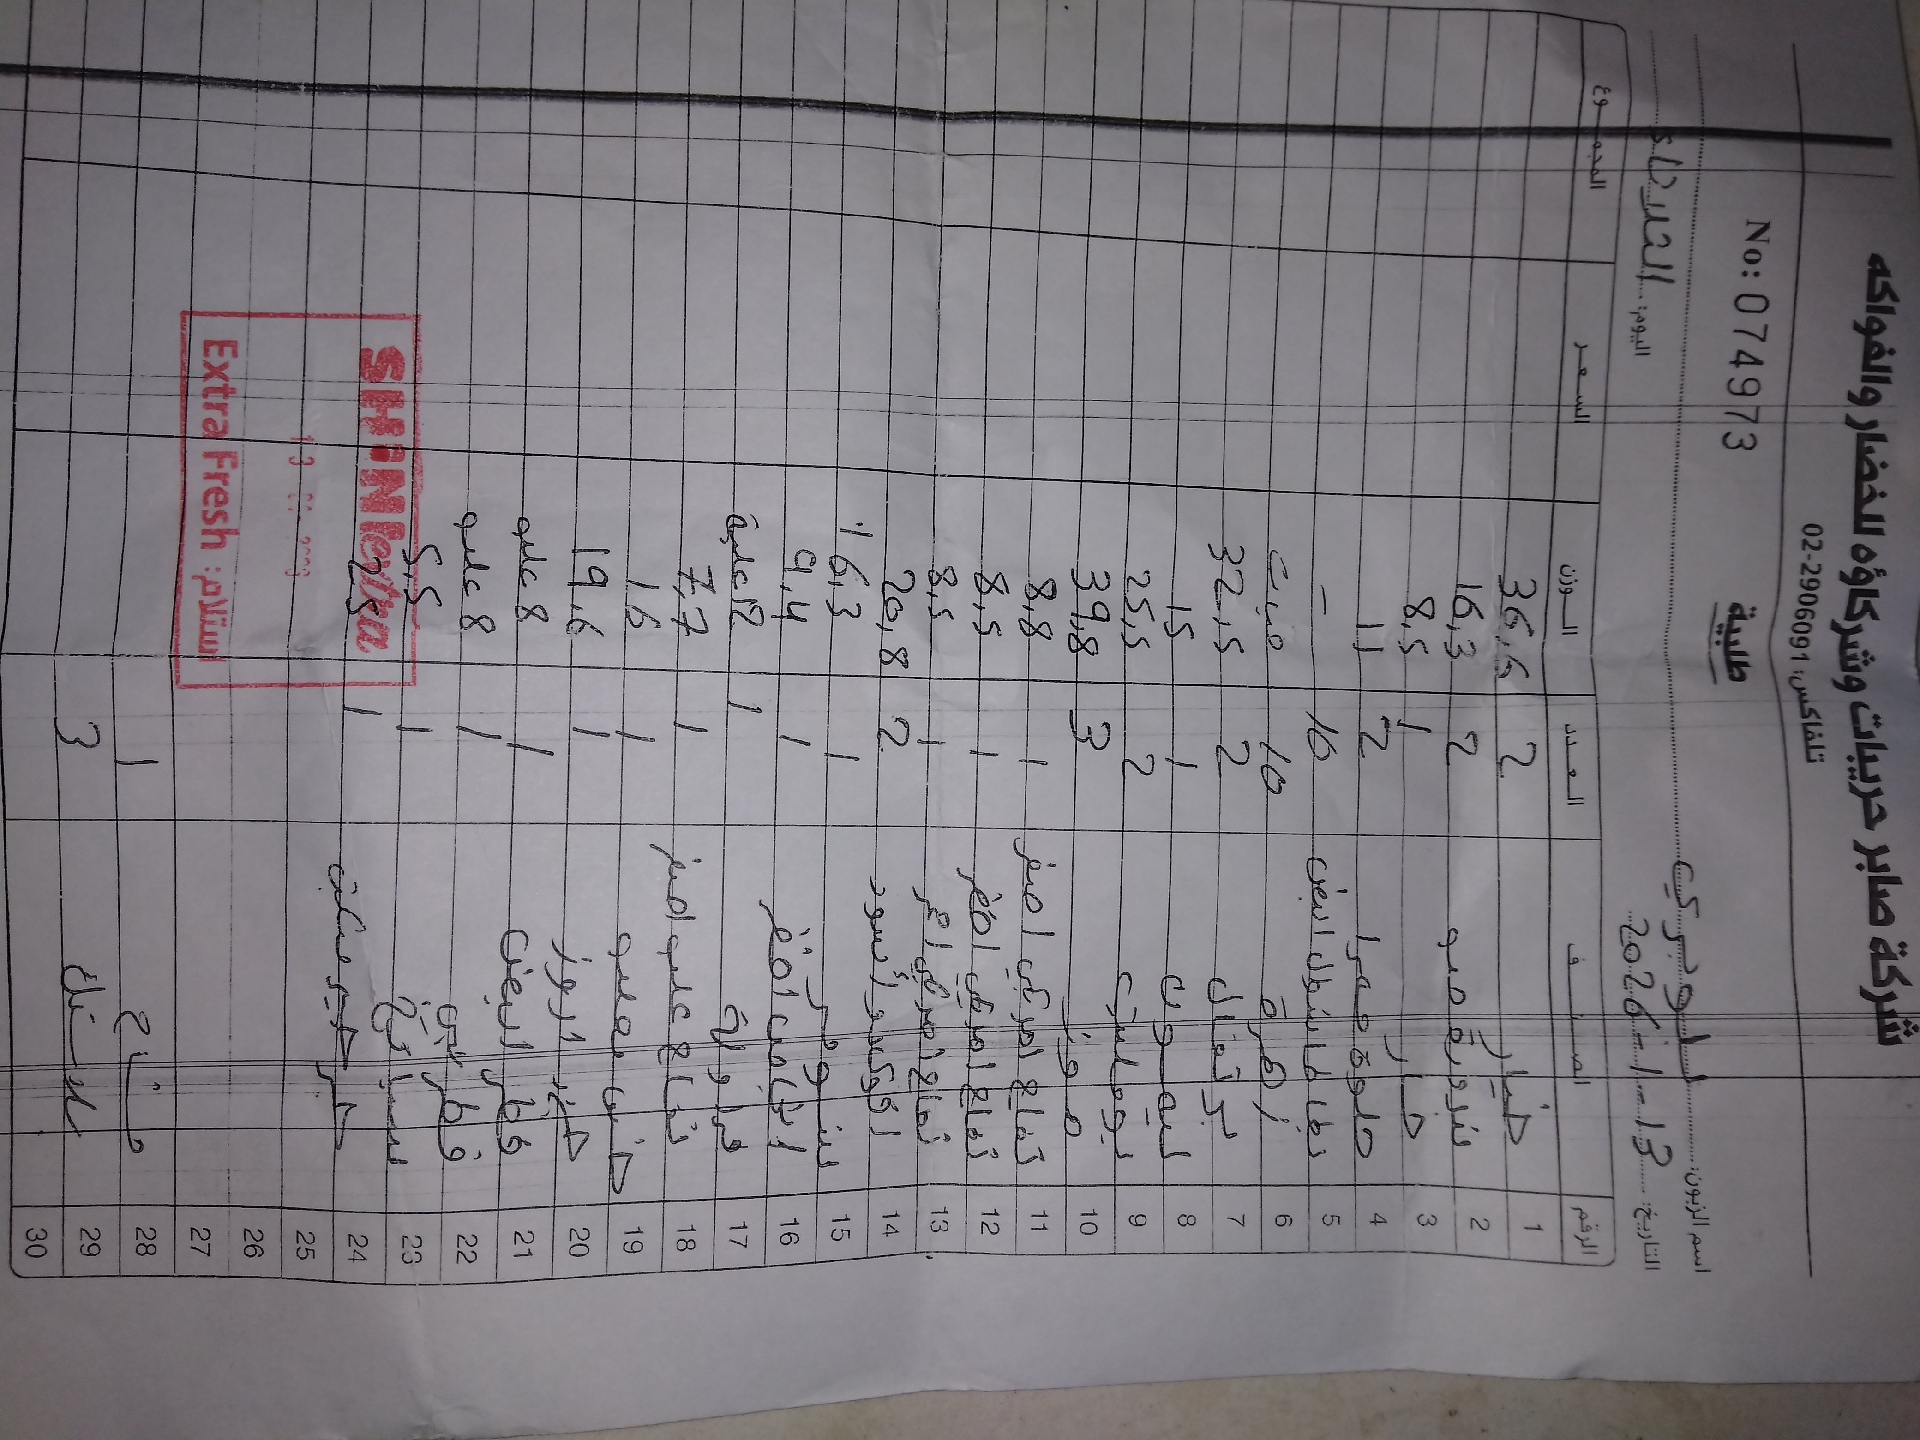 شركة صابر حريبات وشركاؤه للخضار والفواكه
تلفاكس: 02-2906091
No: 074973
طلبية
اسم الزبون:
التاريخ: 13-1-2026 اليوم: الثلاثاء
الرقم الصنف العدد الوزن السعر المجموع
1 خيار 2 36,6
2 بندورة 2 16,3
3 خيار 1 8,5
4 2 11
5 بطاطا ابيض 10 -
6 زهرة 10 حبت
7 برتقال 2 32,5
8 ليمون 1 15
9 بوملي 2 25,5
10 موز 3 39,8
11 تفاح امركي اصفر 1 8,8
12 تفاح امركي اخضر 1 8,5
13 تفاح امركي احمر 1 8,5
14 افوكادو أسود 2 20,8
15 1 16,3
16 1 9,4
17 فراولة 1 12 علبة
18 تفاح اصفر 1 7,7
19 1 16
20 1 19,6
21 فطر ابيض 1 8 علب
22 فطر بني 1 8 علب
23 سبانخ 1 5,5
24 1
25
26
27
28 1
29 3
30
SHiNi extra
13
Extra Fresh استلام: